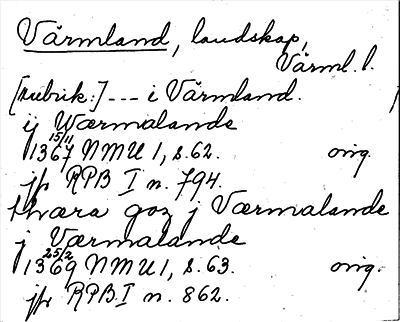 Värmland, landskap,
Värml. l.
[rubrik:] --- i Värmland.
ij Wærmalande
15/11
1367 NMU 1, s. 62. orig.
jfr RPB I n. 794.
thværa goz j Værmalande
j Værmalande
25/2
1369 NMU 1, s. 63. orig.
jfr RPB I n. 862.